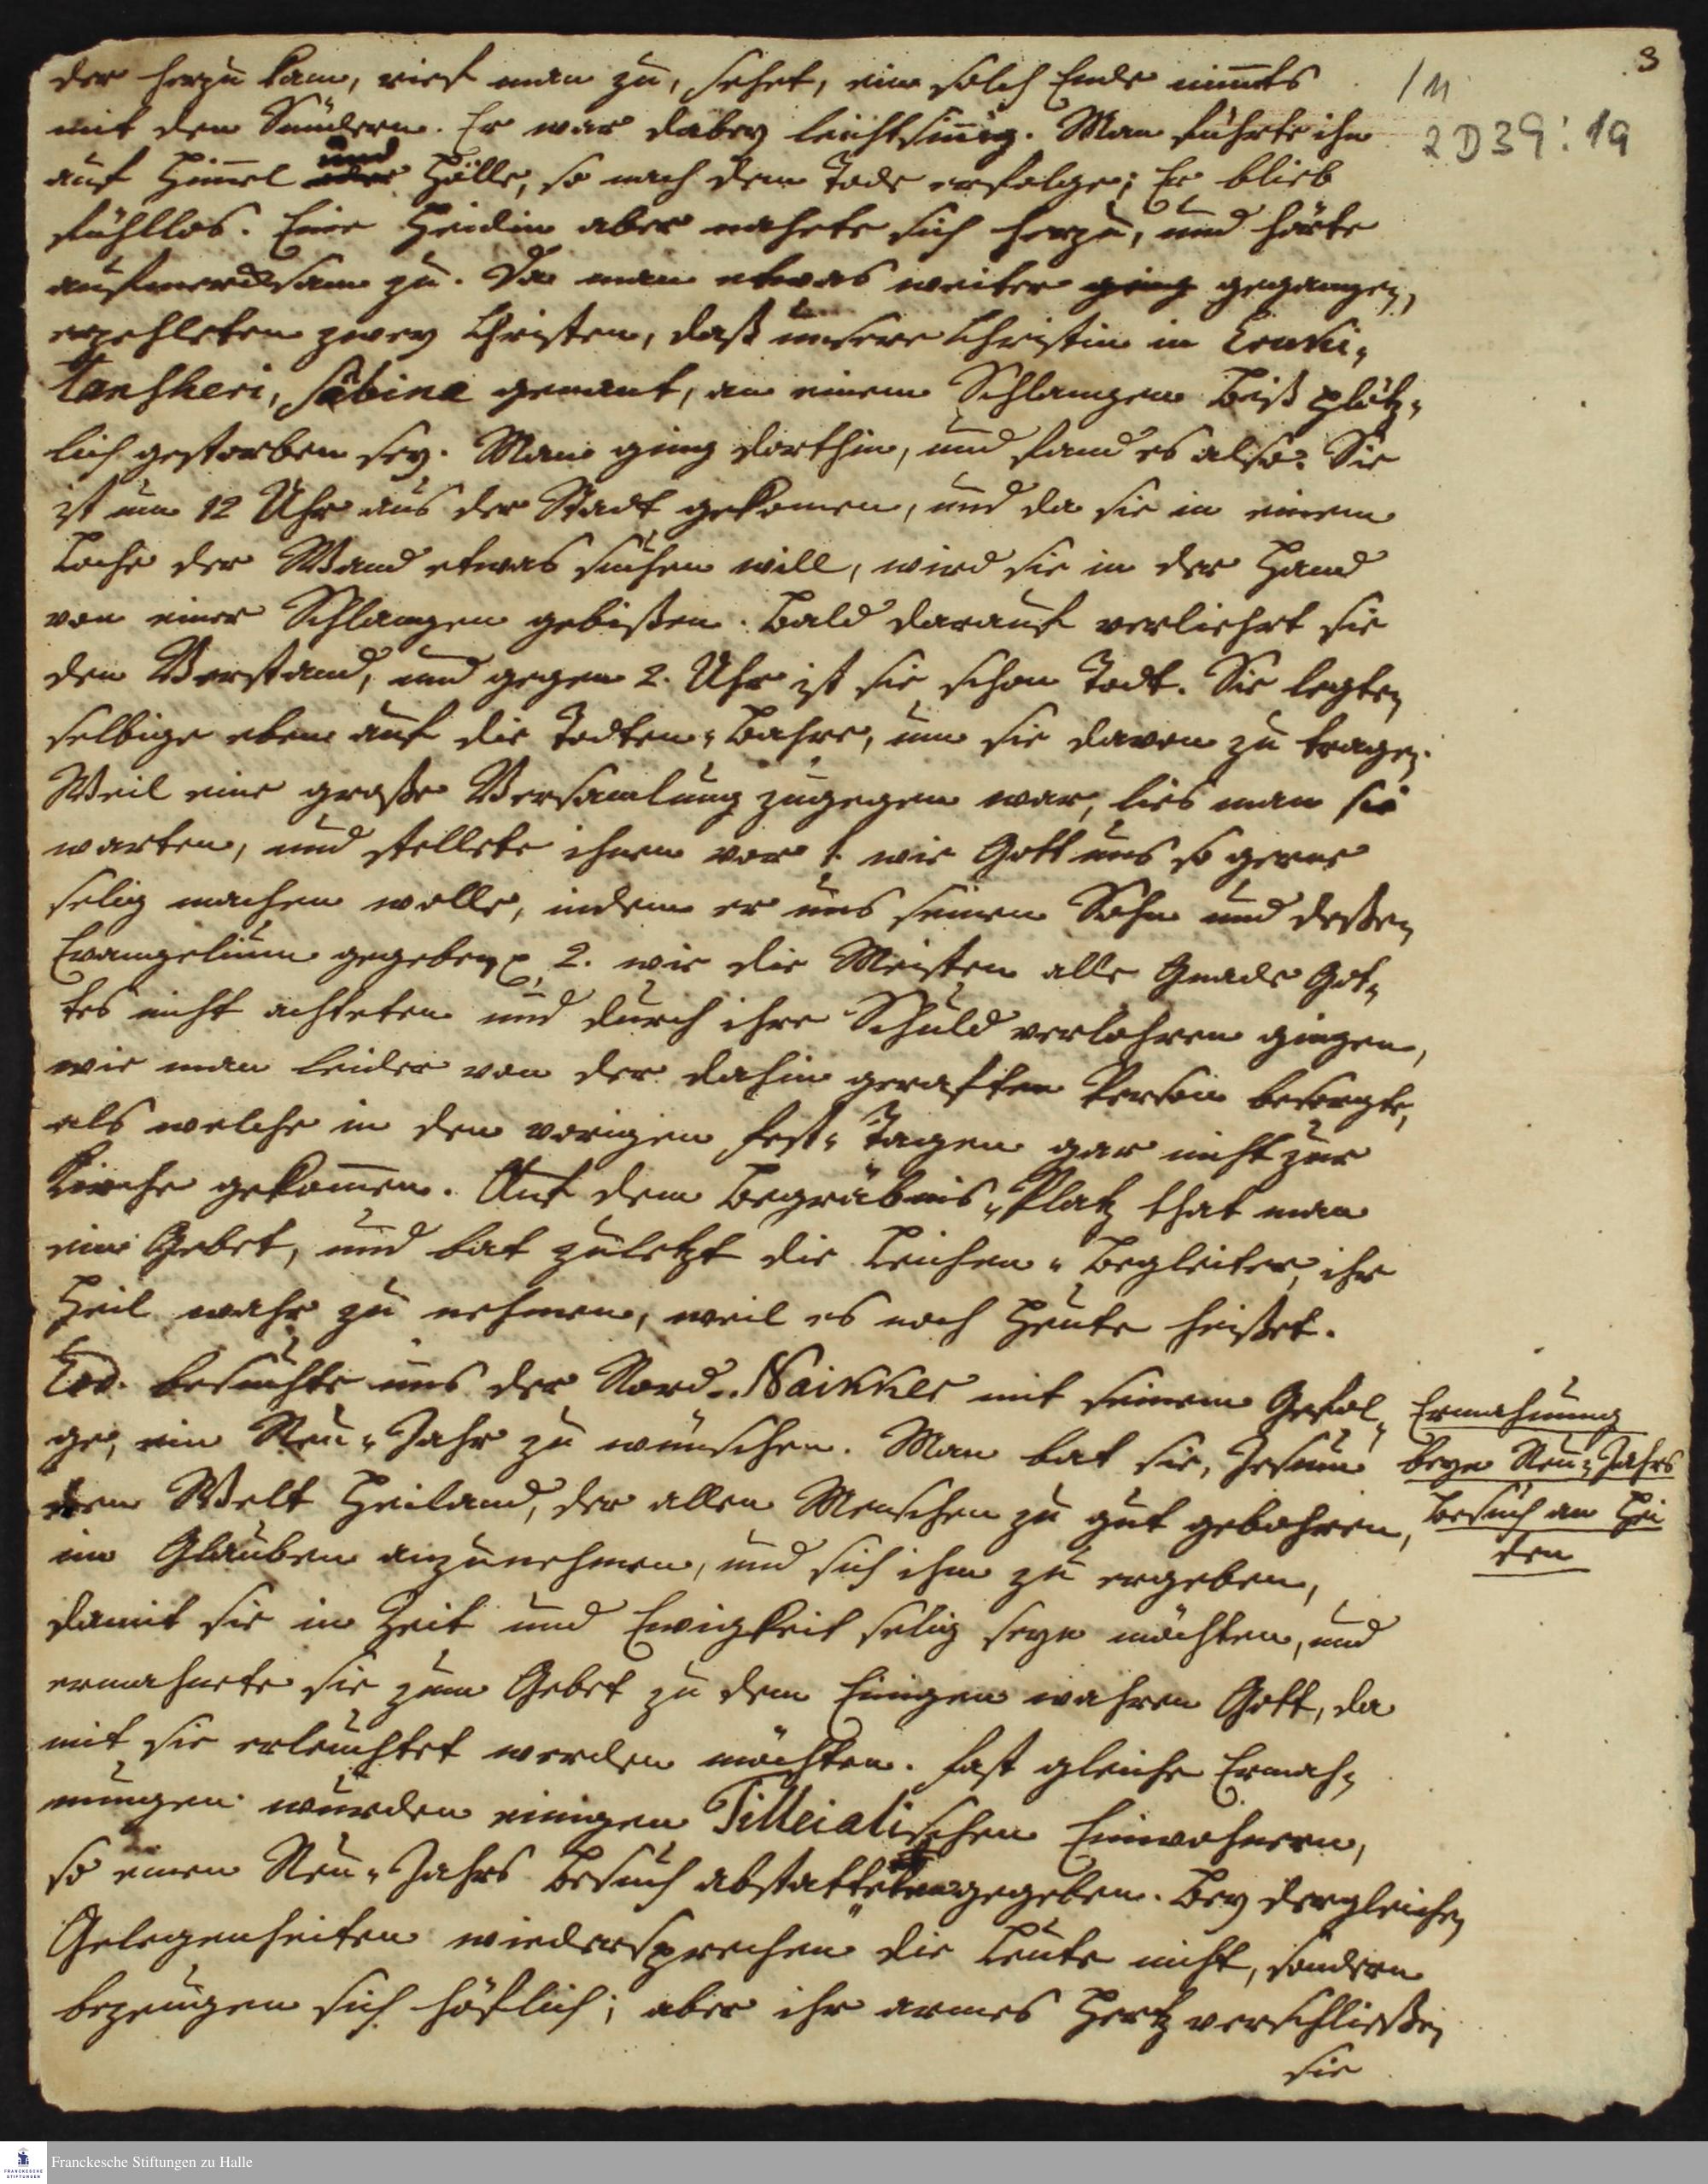 3
/11
2 D 39 : 19
der herzu kam, rief man zu, sehet, ein solch Ende nim̄ts
mit den Sündern. Er war dabey leichtsin̄ig. Man führte ihn
auf Him̄el oder und Hölle, so nach dem Tode erfolge; Er blieb
fühllos. Eine Heidin aber nahete sich herzu, und hörte
aufmercksam zu. Da man etwas weiter ging gegangen,
erzehleten zwey Christen, daß unsere Christin in Eruki-
tansheri, Sabina genant, an einem Schlangen Biß plötz-
lich gestorben sey. Man ging dorthin, und fand es also: Sie
ist um 12 Uhr aus der Stadt gekomen, und da sie in einem
Loche der Wand etwas suchen will, wird sie in der Hand
von einer Schlangen gebißen. Bald darauf verliehrt sie
den Verstand, und gegen 2. Uhr ist sie schon Todt. Sie legten
selbige eben auf die Todten-Bahre, um sie davon zu tragen.
Weil eine große Versamlung zugegen war, lies man sie
warten, und stellete ihnen vor 1. wie Gott uns so gerne
selig machen wolle, indem er uns seinen Sohn und deßen
Evangelium gegeben 2. wie die Meisten alle Gnade Got-
tes nicht achteten und durch ihre Schuld verlohren gingen,
wie man leider von der dahin geraften Person besorgte,
als welche in den vorigen Fest-Tagen gar nicht zur
Kirche gekom̄en. Auf dem Begräbnis-Platz that man
ein Gebet, und bat zuletzt die Leichen-Begleiter, ihr
Heil wahr zu nehmen, weil es noch Heute heißet.
Eod. besuchte uns der Nord-Naikker mit seinem Gefol-
ge, ein Neu-Jahr zu wünschen. Man bat sie, Jesum
den Welt Heiland, der allen Menschen zu gut gebohren,
im Glauben anzunehmen, und sich ihm zu ergeben,
damit sie in Zeit und Ewigkeit selig seyn möchten, und
ermahnete sie zum Gebet zu dem Einigen wahren Gott, da
mit sie erleuchtet werden möchten. Fast gleiche Ermah-
nungen wurden einigen Tilleialischen Einwohnern,
so einen Neu-Jahrs Besuch abstatteten gegeben. Bey dergleichen
Gelegenheiten wiedersprechen die Leute nicht, sondern
bezeugen sich höflich; aber ihr armes Hertz verschließen
sie
Ermahnung
beym Neu-Jahrs
Besuch an Hei
den
Franckesche Stiftungen zu Halle